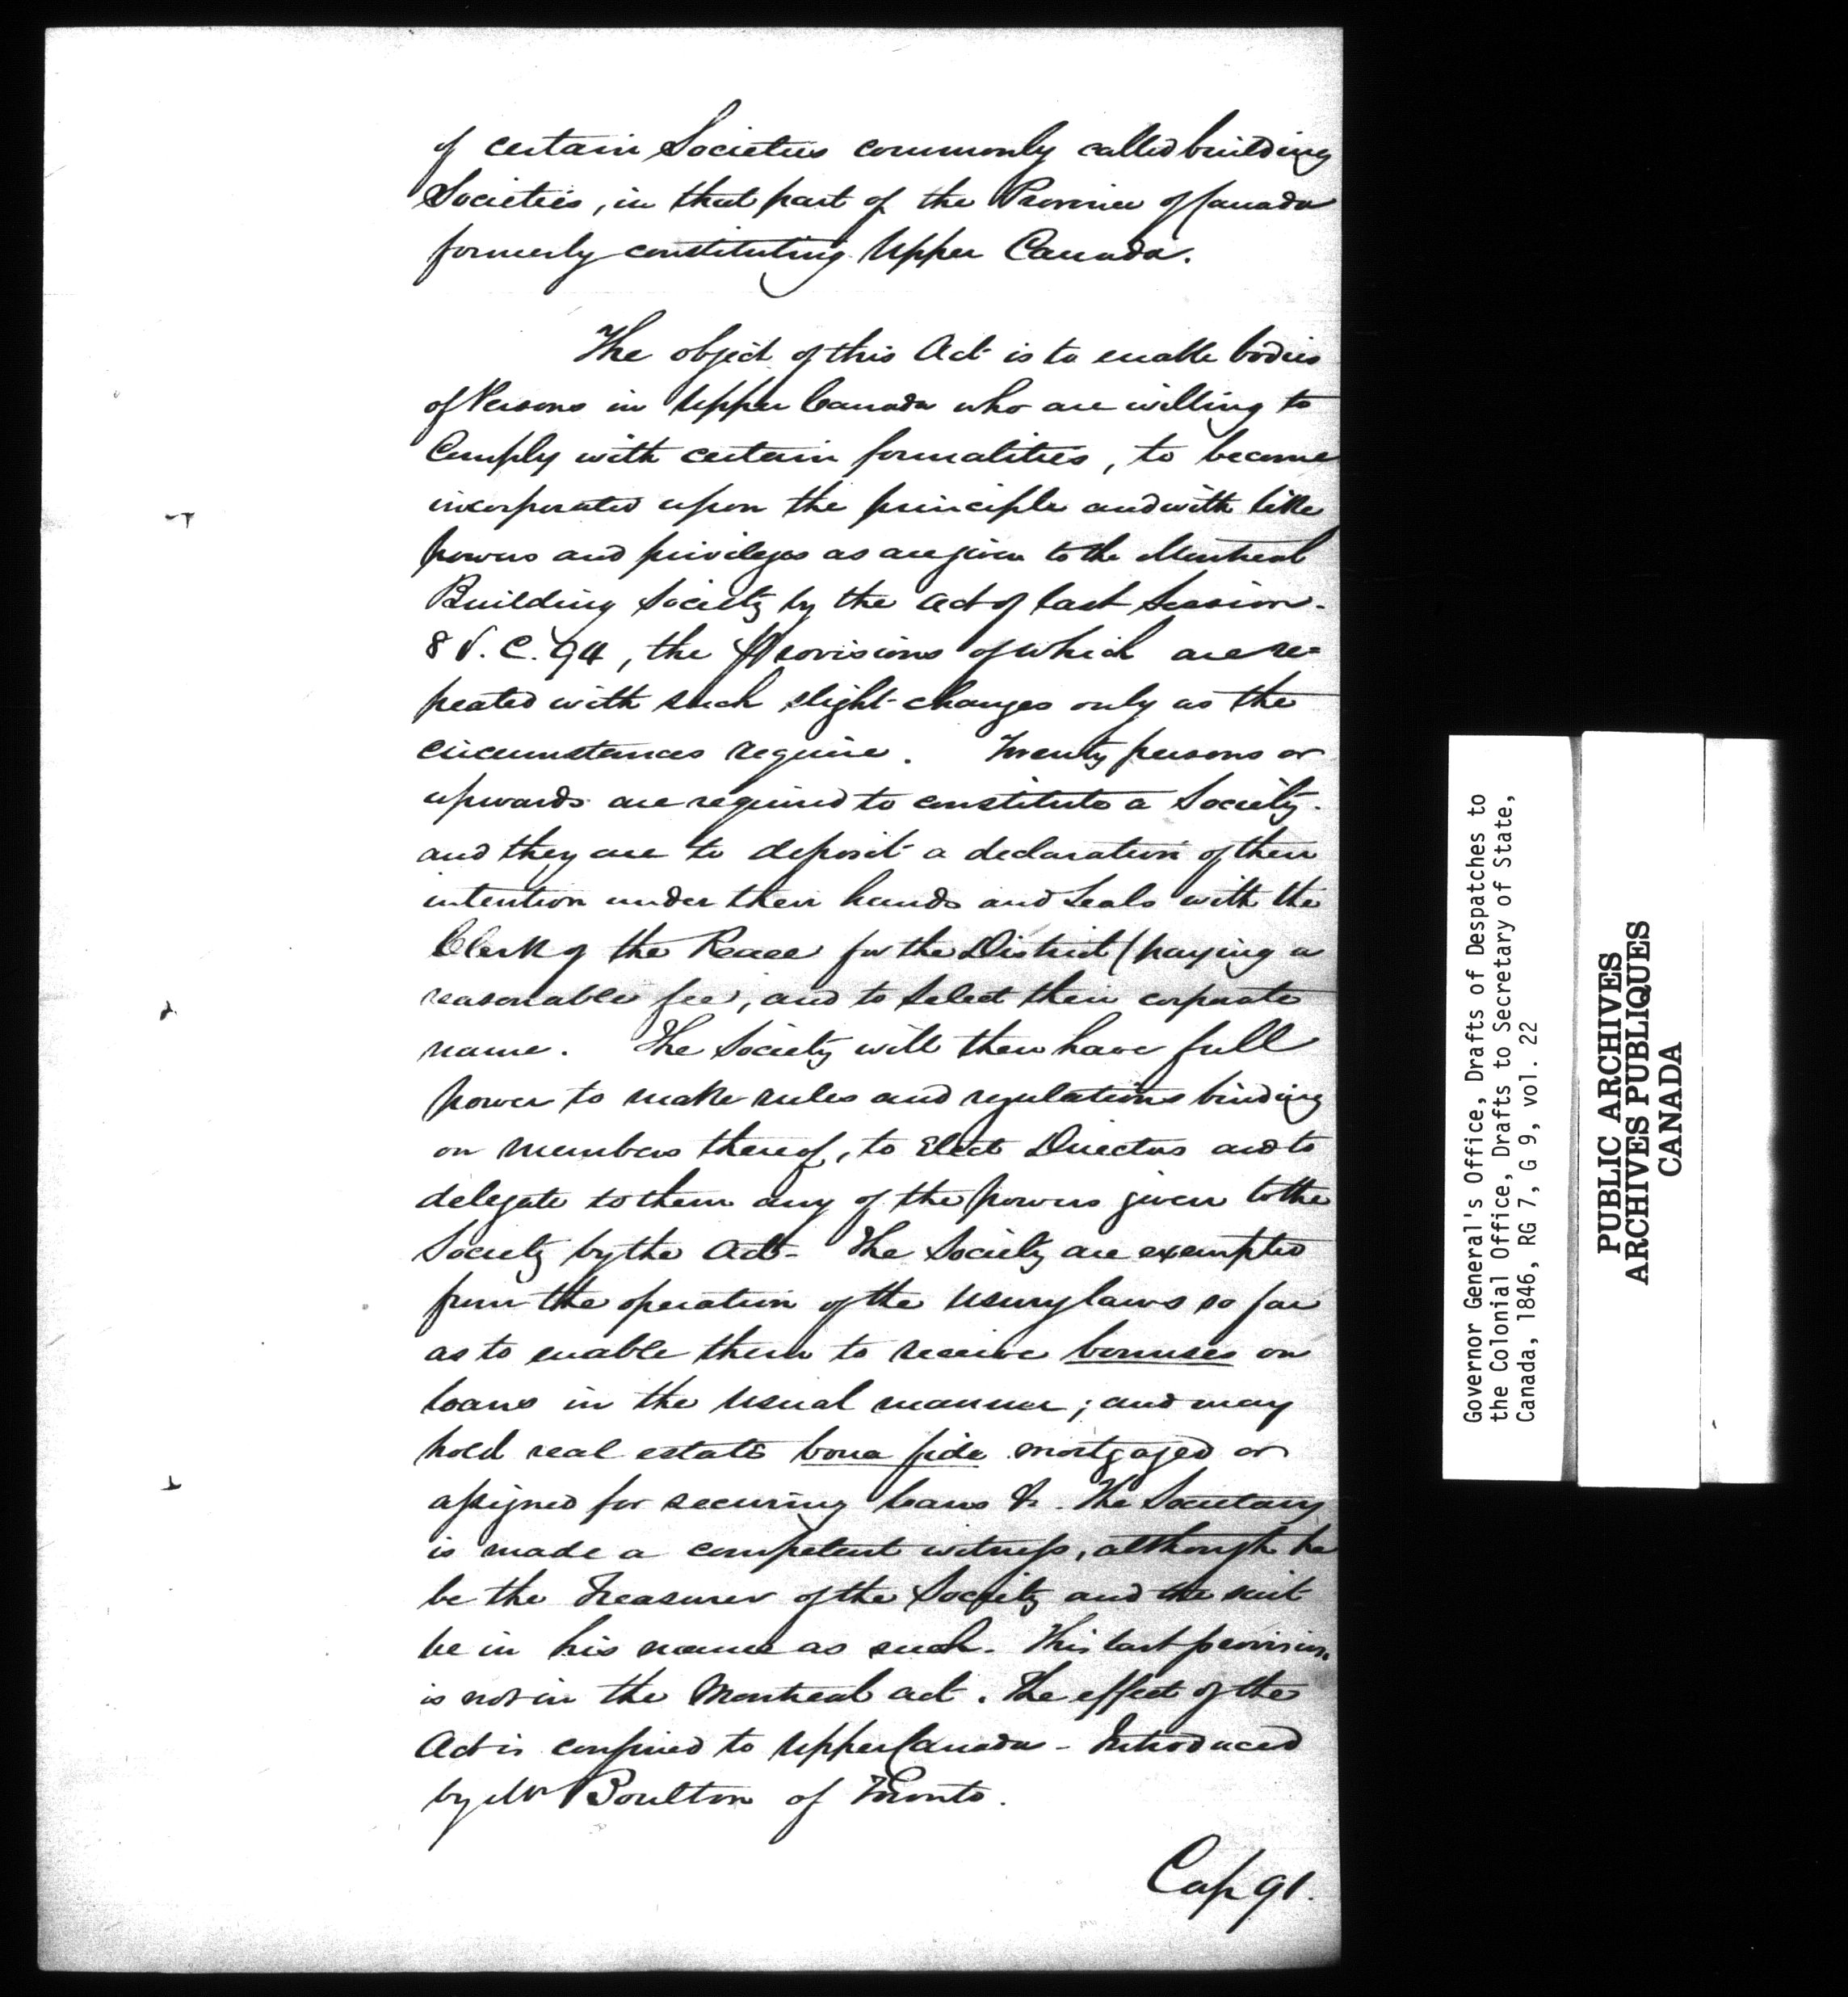 of certain Societies commonly called building
Societies, in that part of the Province of Canada
formerly constituting Upper Canada.
The object of this Act is to enable bodies
of Persons in Upper Canada who are willing to
Comply with certain formalities, to become
incorporated upon the principle and with like
powers and privileges as are given to the Montreal
Building Society by the Act of last Session.
8 V. C. 94, the Provisions of which are re=
peated with such slight changes only as the
circumstances require. Twenty persons or
upwards are required to constitute a Society.
and they are to deposit a declaration of their
intention under their hands and Seals with the
Clerk of the Peace for the District (paying a
reasonable fee), and to select their corporate
name. The Society will then have full
power to make rules and regulations binding
on members thereof, to elect Directors and to
delegate to them any of the powers given to the
Society by the Act - The Society are exempted
from the operation of the Usury laws so far
as to enable them to receive bonuses on
loans in the usual manner; and may
hold real estate bona fide mortgaged or
assigned for securing loans &c. The Secretary
is made a competent witness, although he
be the Treasurer of the Society and the suit
be in his name as such. This last provision
is not in the Montreal act. The effect of the
Act is confined to Upper Canada - Introduced
by Mr Boulton of Toronto.
Cap 91.
Governor General's Office, Drafts of Despatches to
the Colonial Office, Drafts to Secretary of State,
Canada, 1846, RG 7, G 9, vol. 22
PUBLIC ARCHIVES
ARCHIVES PUBLIQUES
CANADA